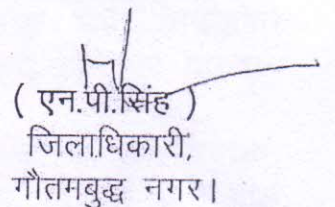 ( एन.पी.सिंह )
जिलाधिकारी,
गौतमबुद्ध नगर।